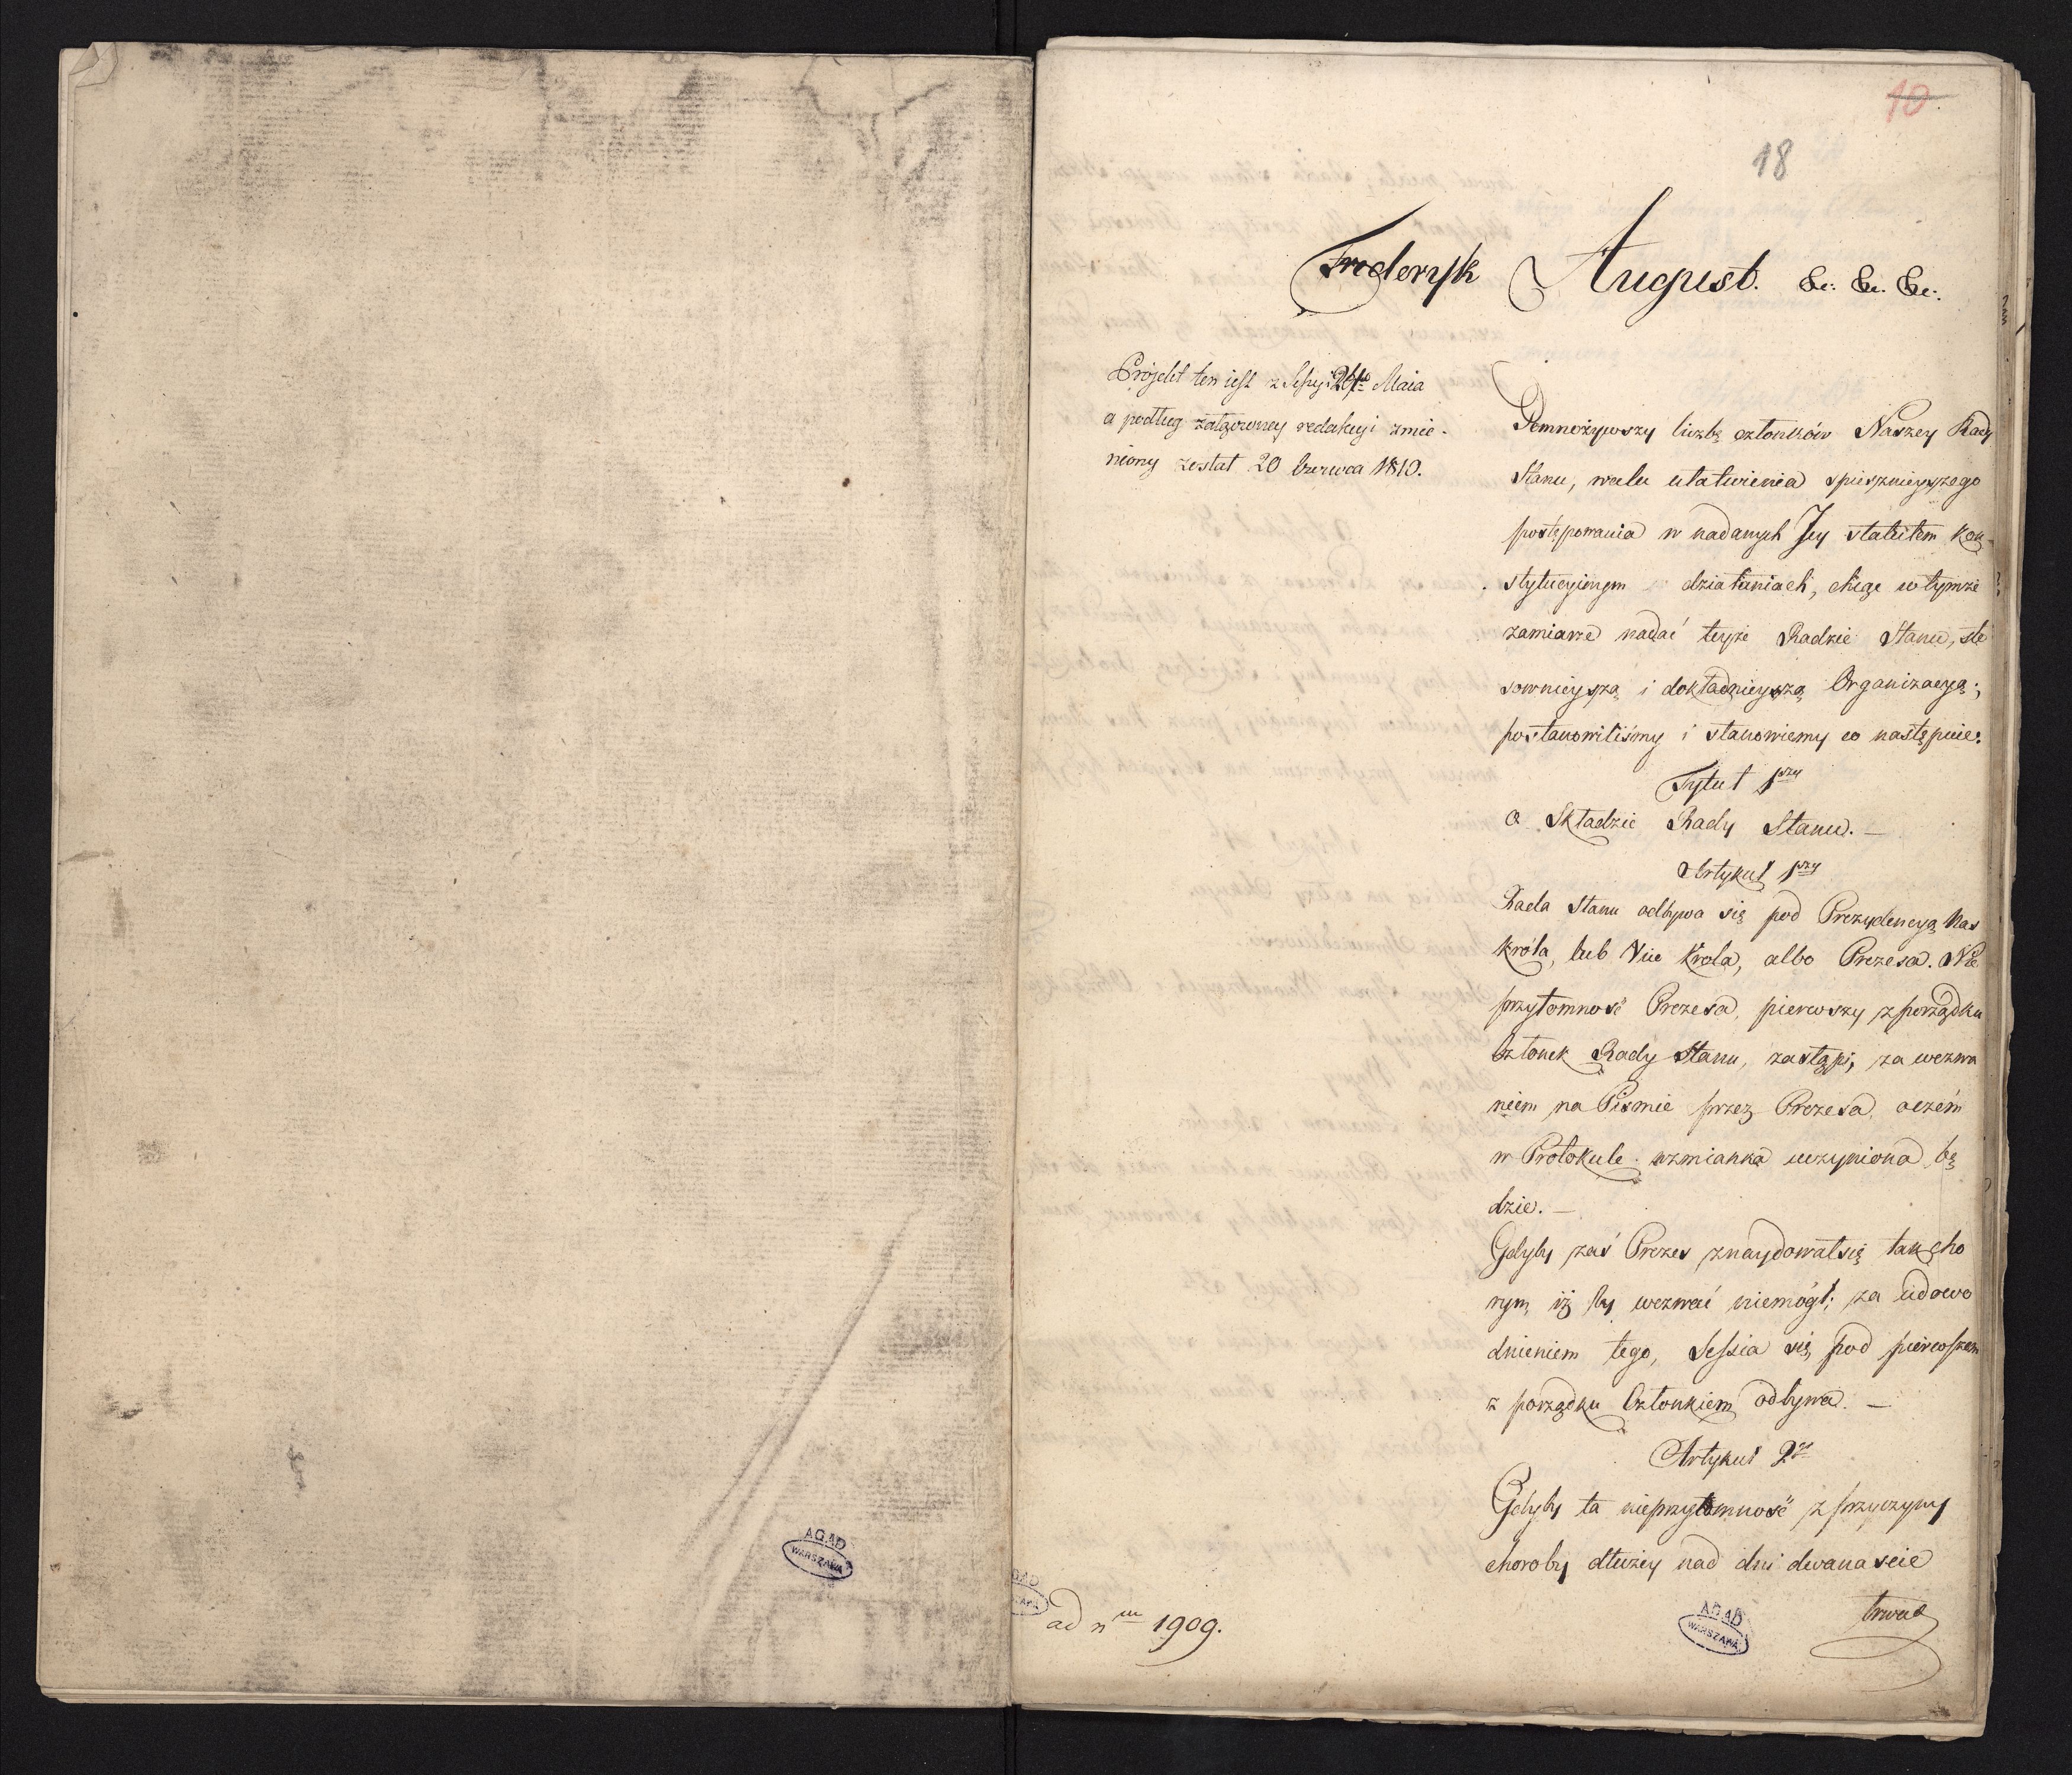 10
18
Fryderyk August. &c: &c. &c:.
Projekt ten iest z Sessyi 26go Maia
a podług załączoney redakcyi zmie-
niony został 20 Czerwca 1810.
Pomnożywszy liczbę członków Naszey Rady
Stanu, w celu ułatwienia spieszniejszego
postępowania w nadanych Jey statutem kon-
stytucyinym działaniach, chcąc w tymże
zamiarze nadać teyże Radzie Stanu, sto
sownieyszą i dokładnieyszą Organizacyą;
postanowiliśmy i stanowiemy co następuie:
Tytuł 1szy
O Składzie Rady Stanu. —
Artykuł 1szy
Rada Stanu odbywa się pod Prezydencyą Nas
Króla, lub Vice Króla, albo Prezesa. Nie
przytomność Prezesa, pierwszy z porządku
Członek Rady Stanu, zastąpi, za wezwa
niem na Pismie przez Prezesa, oczém
w Protokule wzmianka uczyniona bę
dzie. —
Gdyby zaś Prezes znaydował się tak cho
rym, iż by wezwać niemógł; za udowo
dnieniem tego, Sessia się pod pierwszem
z porządku Członkiem odbywa. —
Artykuł 2gi
Gdyby ta nieprzytomność z przyczyny
choroby dłużey nad dni dwanaście
trwać
ad nm 1909.
AGAD
WARSZAWA
AGAD
WARSZAWA